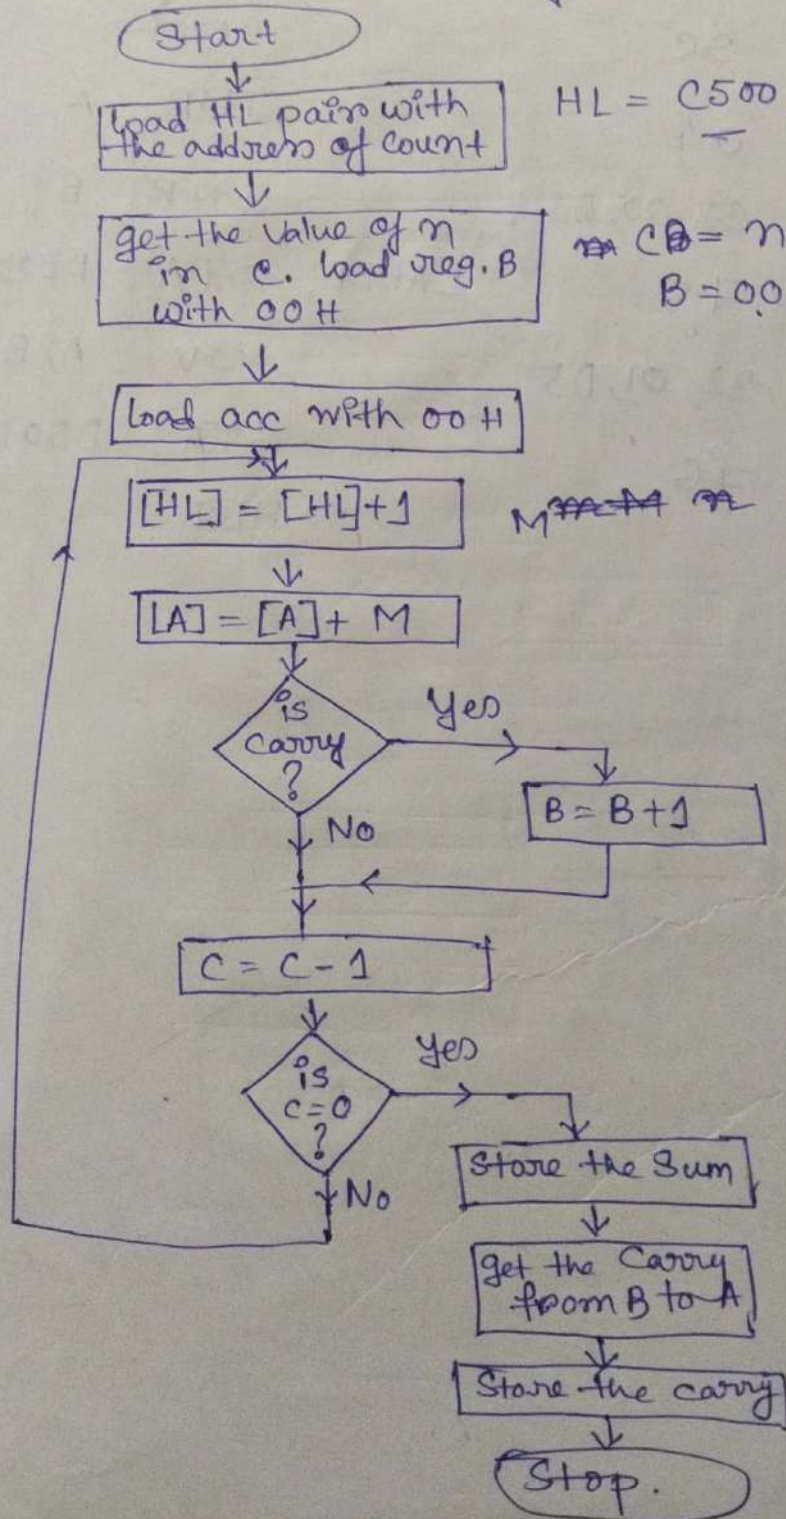 Start
Load HL pairs with
the address of count
HL = C500
get the value of n
in c. load reg. B
with 00 H
C = n
B = 00
Load acc with 00 H
[HL] = [HL]+1
M
[A] = [A] + M
is
carry
?
Yes
B = B + 1
No
C = C - 1
is
c=0
?
Yes
No
Store the Sum
get the Carry
from B to A
Store the carry
Stop.